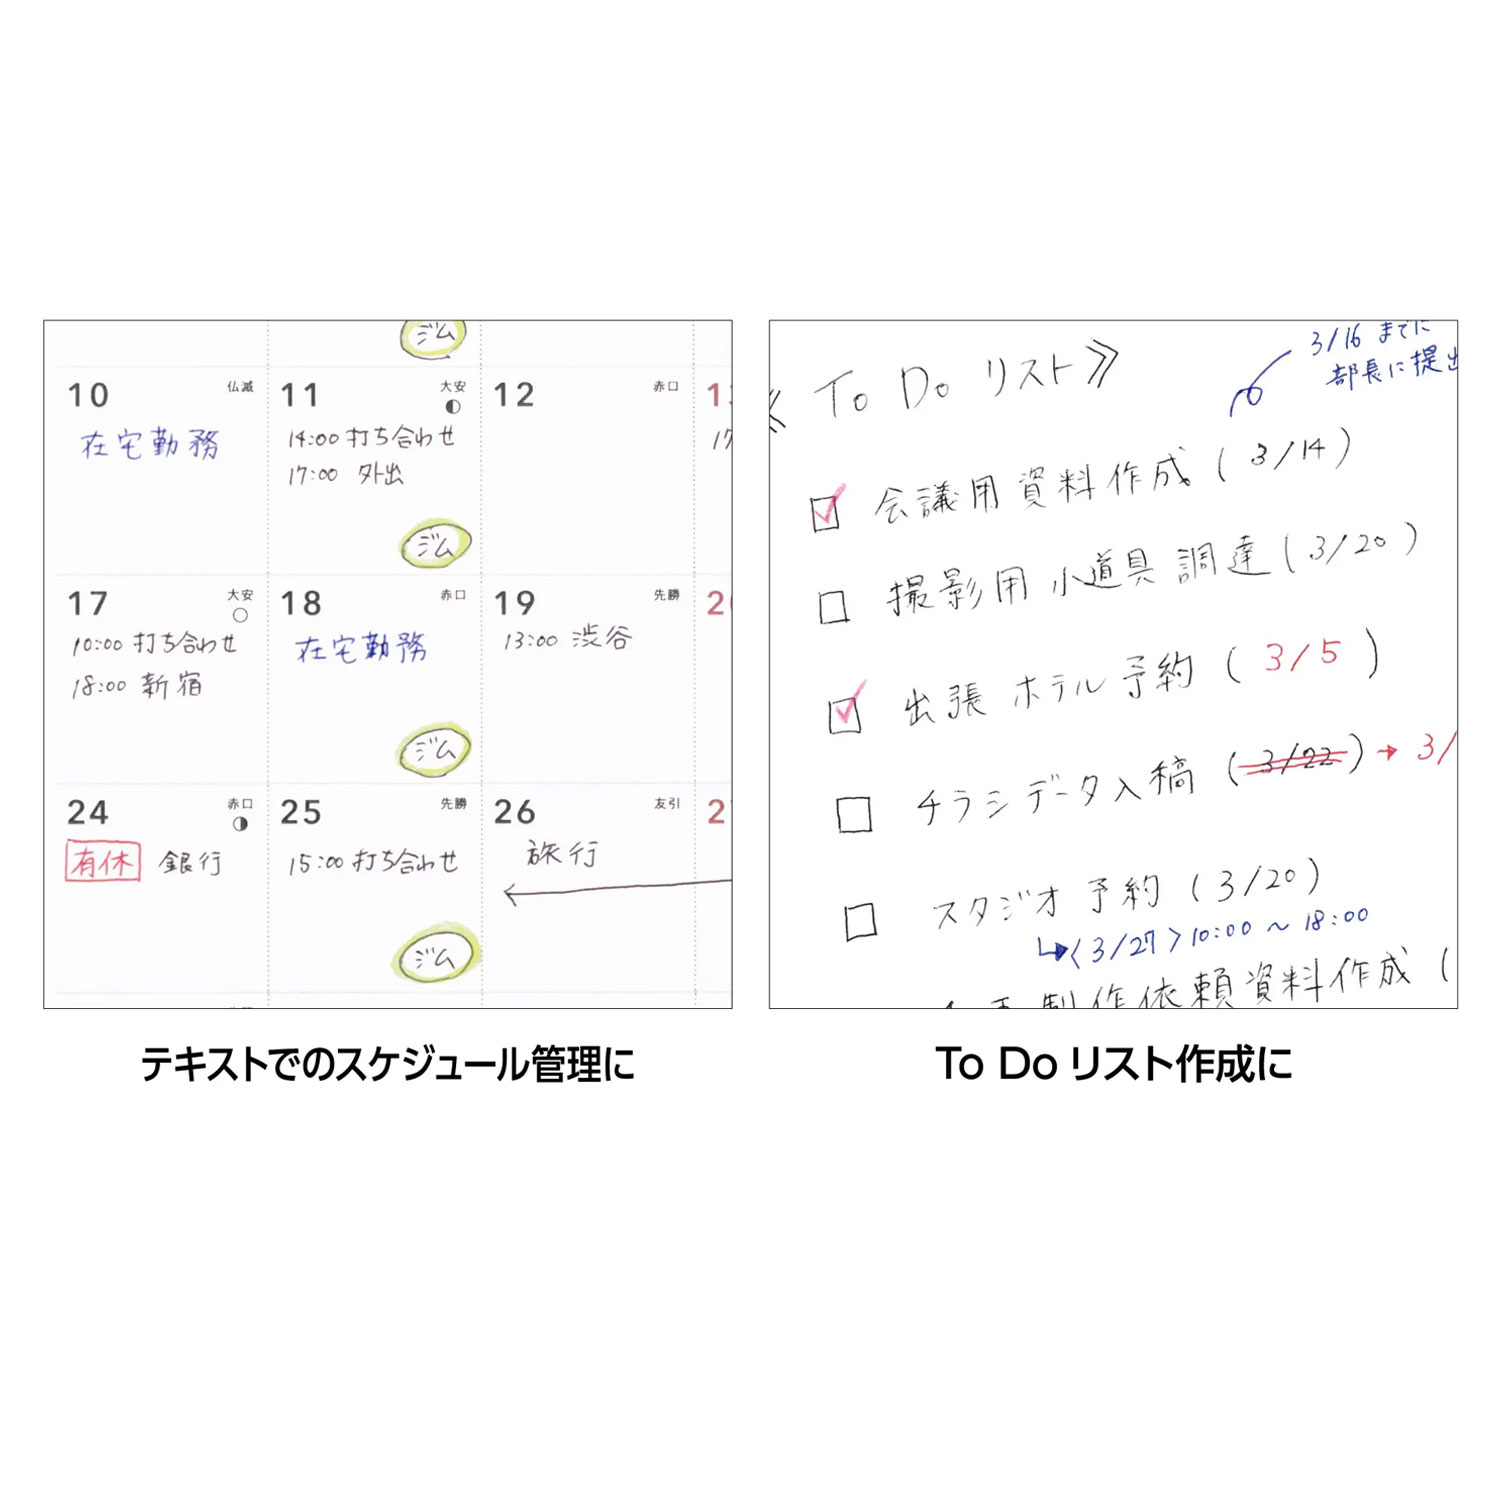 ジム
10 仏滅
在宅勤務
11 大安
14:00 打ち合わせ
17:00 外出
ジム
12 赤口
17 大安
10:00 打ち合わせ
18:00 新宿
18 赤口
在宅勤務
ジム
19 先勝
13:00 渋谷
24 赤口
有休 銀行
25 先勝
15:00 打ち合わせ
ジム
26 友引
旅行
テキストでのスケジュール管理に
3/16 までに
部長に提出
To Do リスト》
会議用資料作成 (3/14)
撮影用小道具調達 (3/20)
出張ホテル予約 (3/5)
チラシデータ入稿 (3/22) → 3/
スタジオ予約 (3/20)
↳〈3/27〉10:00 ~ 18:00
制作依頼資料作成 (
To Do リスト作成に